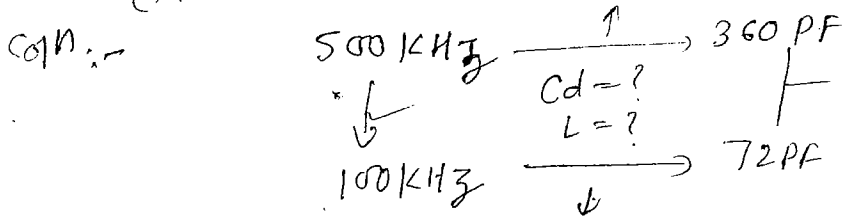 Soln:-
500 KHz → 360 PF
Cd = ?
L = ?
100 KHz → 72 PF